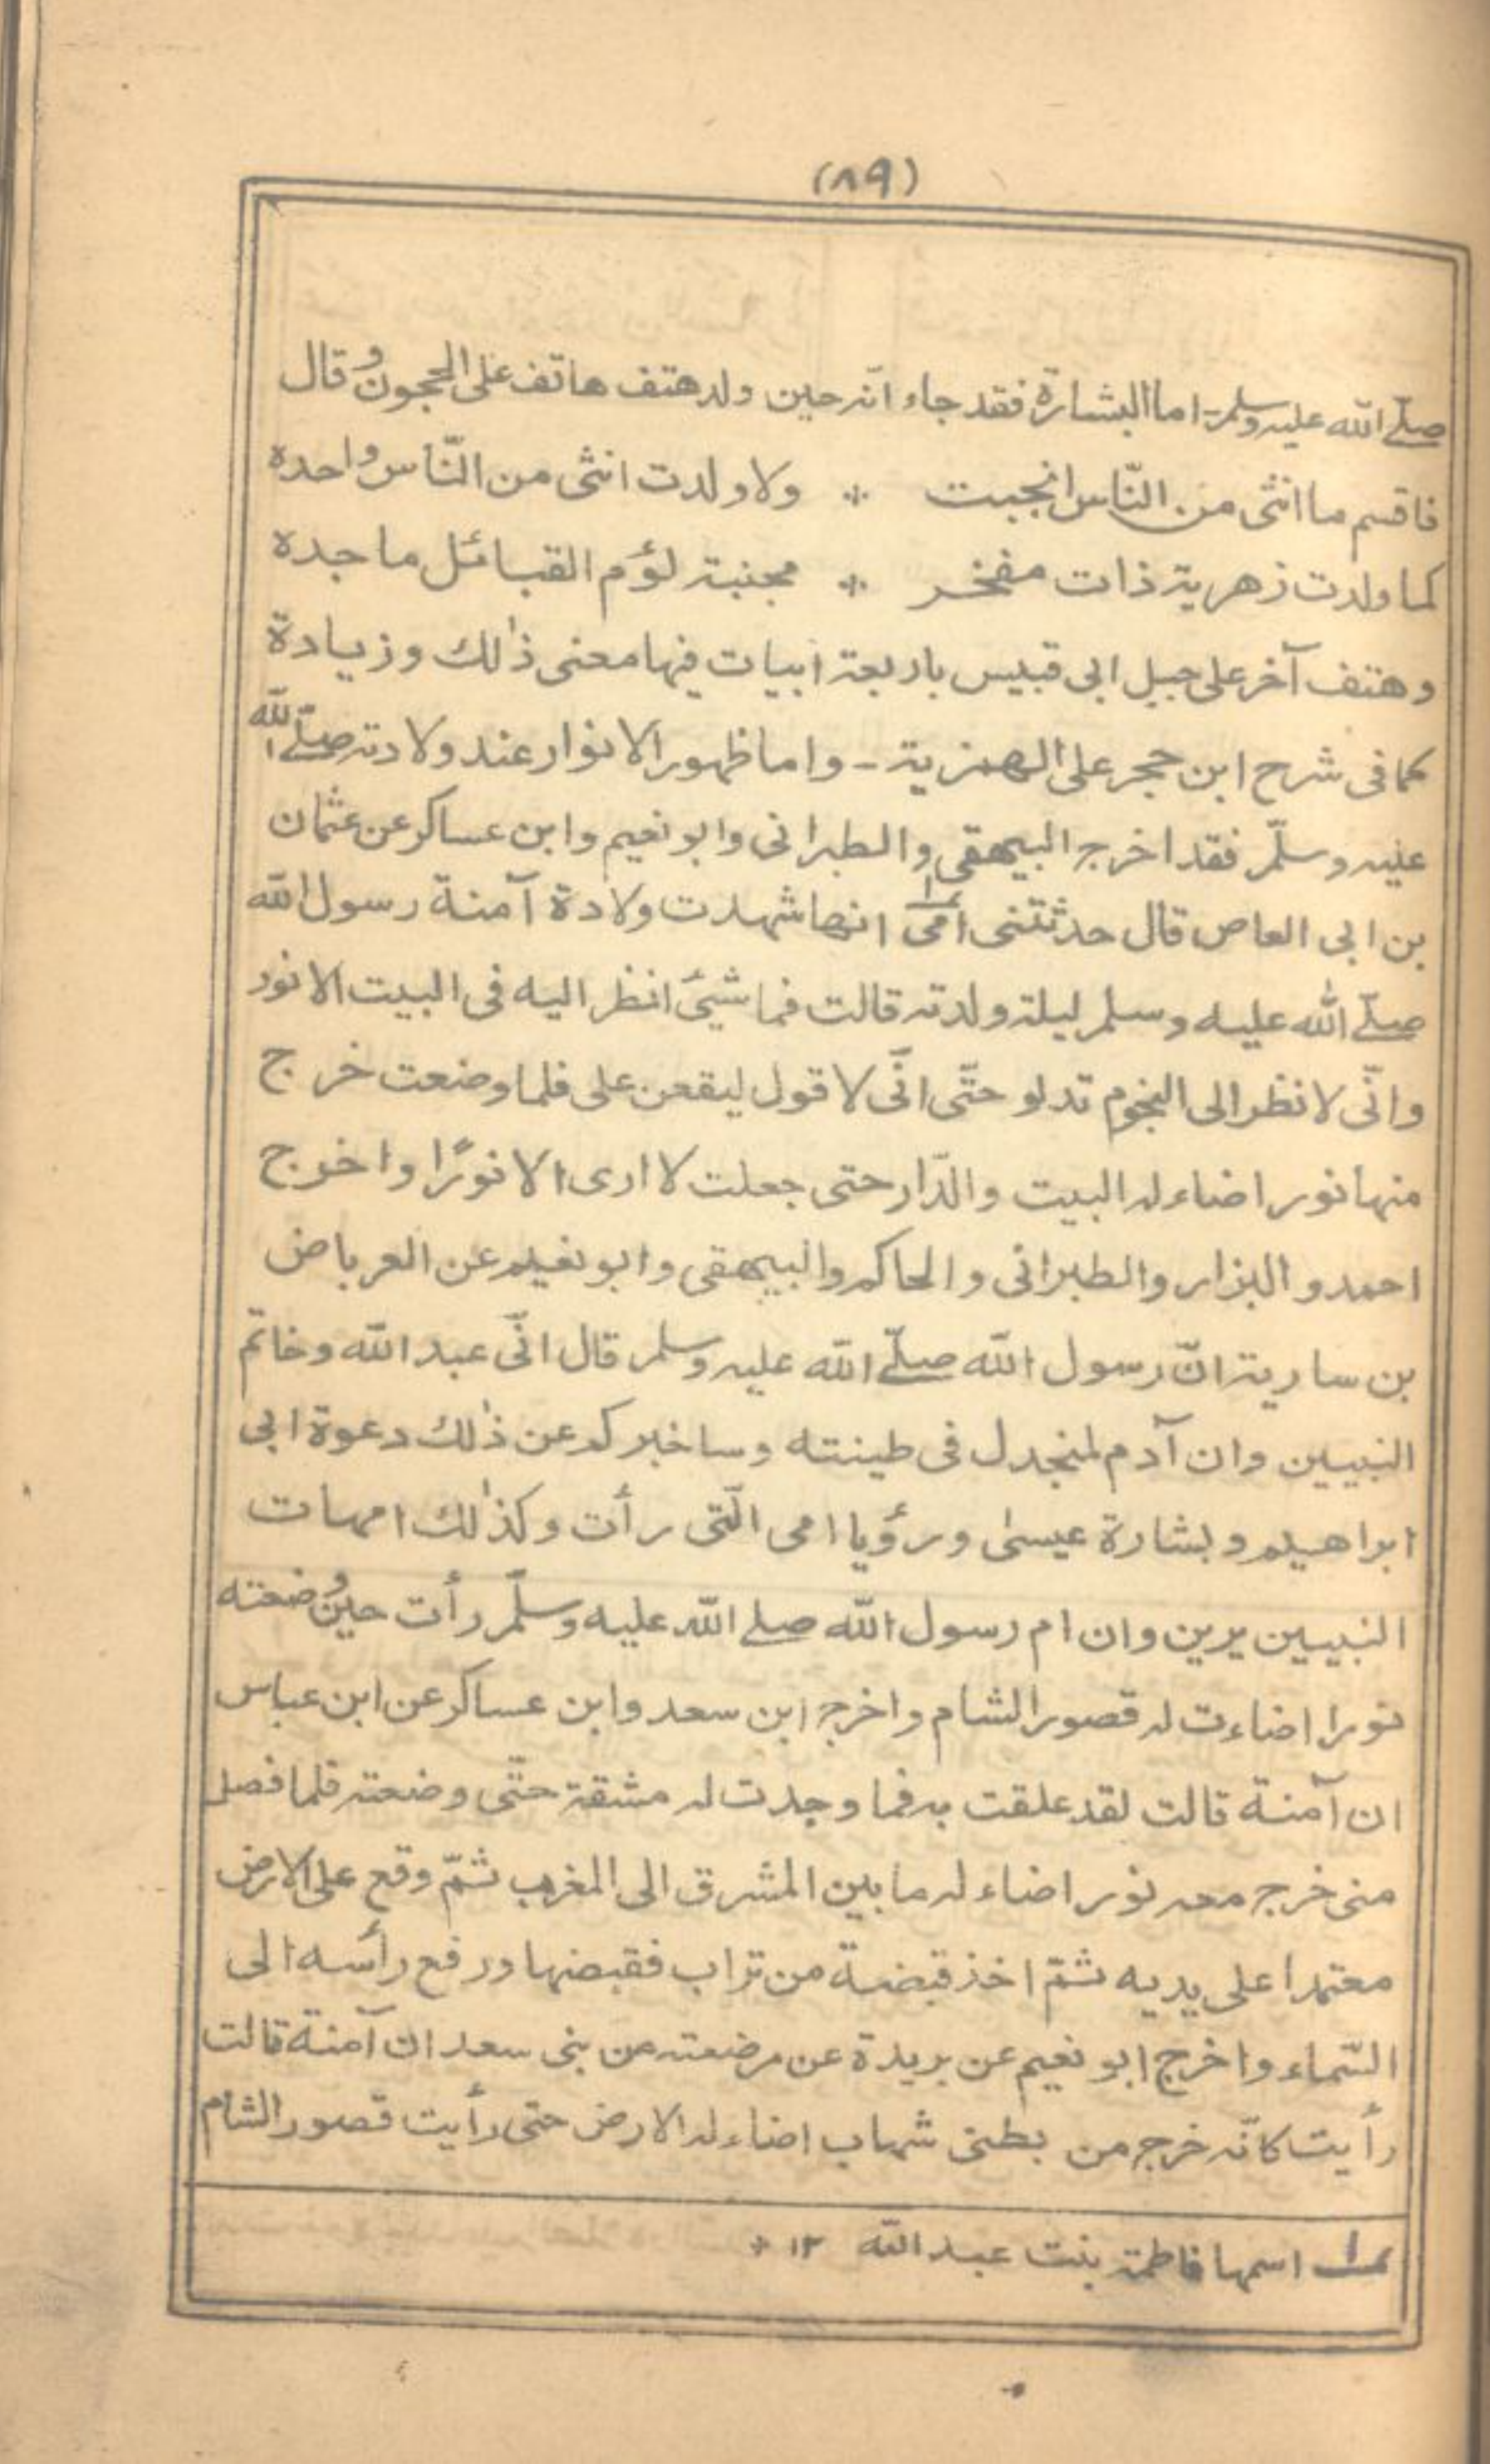 (٨٩)
صلے الله عليه وسلم ـ اما البشارة فقد جاء انّه حين ولد هتف هاتف على الحجون وقال
فاقسم ما انثى من النّاس انجبت * ولا ولدت انثى من النّاس واحدة
كما ولدت زهرية ذات مفخر * مجنبة لؤم القبائل ماجدة
وهتف آخر على جبل ابى قبيس باربعة ابيات فيها معنى ذٰلك وزيادة
كما فى شرح ابن حجر على الهمزية ـ واما ظهور الانوار عند ولادته صلّے الله
عليه وسلّم فقد اخرج البيهقى والطبرانى وابو نعيم وابن عساكر عن عثمان
بن ابى العاص قال حدثتنى امى؁١ انها شهدت ولادة آمنة رسول الله
صلّے الله عليه وسلم ليلة ولدته قالت فما شيئ انظر اليه فى البيت الا نور
وانّى لانظر الى النجوم تدلو حتّى انّى لاقول ليقعن على فلما وضعت خرج
منها نور اضاء له البيت والدّار حتى جعلت لا ارى الا نورًا واخرج
احمد و البزار والطبرانى و الحاكم والبيهقى و ابو نعيم عن العرباض
بن سارية انّ رسول الله صلّے الله عليه وسلم قال انّى عبد الله وخاتم
النبيين وان آدم لمنجدل فى طينته وساخبركم عن ذٰلك دعوة ابى
ابراهيم وبشارة عيسىٰ ورؤيا امى الّتى رأت وكذٰلك امهات
النبيين يرين وان ام رسول الله صلے الله عليه وسلّم رأت حين وضعته
نورا اضاءت له قصور الشام واخرج ابن سعد وابن عساكر عن ابن عباس
ان آمنة قالت لقد علقت به فما وجدت له مشقة حتّى وضعته فلما فصل
منى خرج معه نور اضاء له ما بين المشرق الى المغرب ثمّ وقع على الارض
معتمدا على يديه ثمّ اخذ قبضة من تراب فقبضها ورفع رأسه الى
السّماء واخرج ابو نعيم عن بريدة عن مرضعته من بنى سعد ان آمنة قالت
رأيت كانّه خرج من بطنى شهاب اضاء له الارض حتى رأيت قصور الشام
؁١ اسمها فاطمة بنت عبد الله ١٢ *